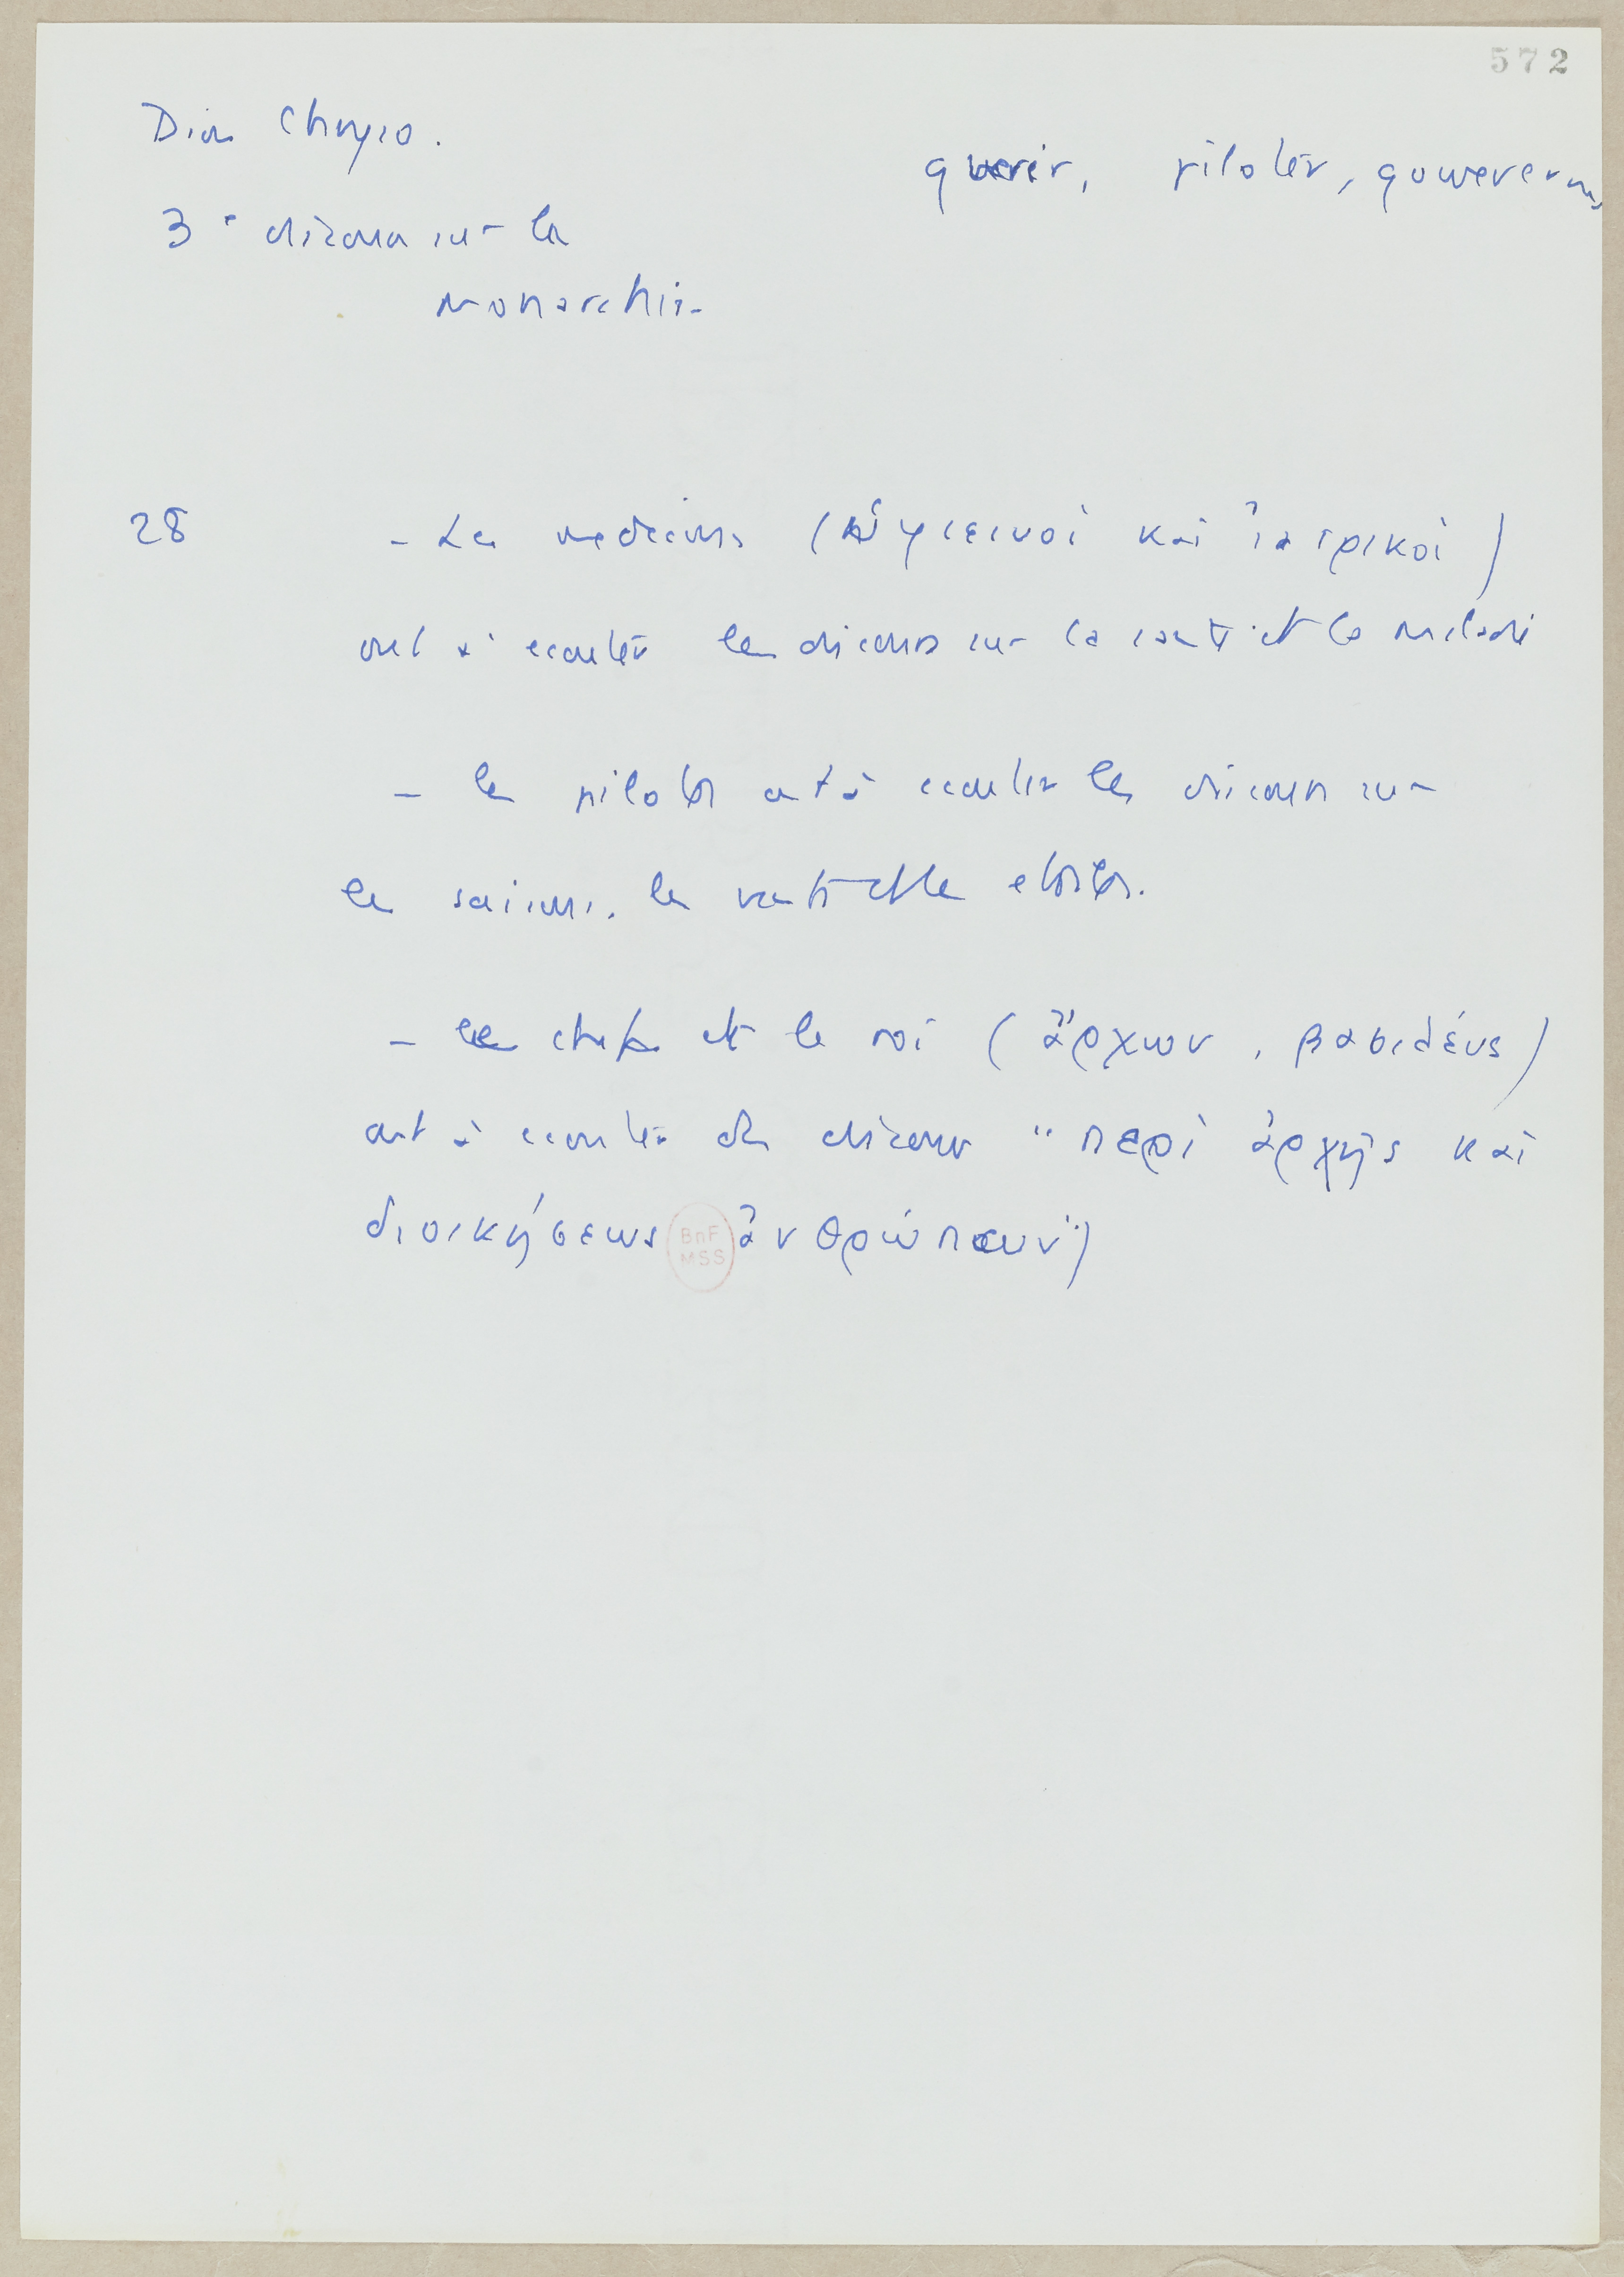 572
Dion Chryso.
guerir, piloter, gouverner
3e discours sur la
monarchie
28
- Les medecins (ὑγιεινοὶ καὶ ἰατρικοὶ)
ont à ecouter les discours sur la santé et la maladie
- les pilotes ont à ecouter les discours sur
les saisons, les vents et les etoiles.
- les chefs et le roi (ἄρχων, βασιλέυς)
ont à ecouter des discours "περὶ ἀρχῆς καὶ
διοικήσεως ἀνθρώπων")
BnF
MSS